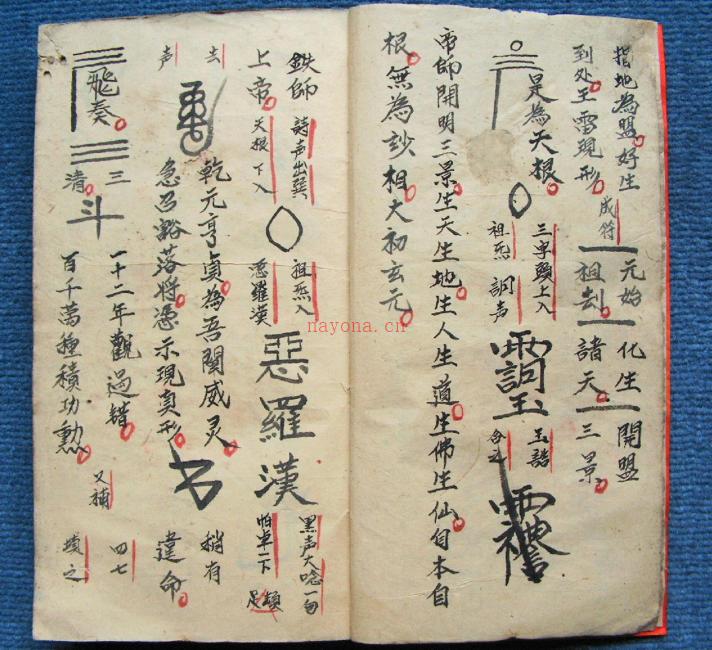 指地為盟。好生
到处王雷現形。
成符
元始 化生 開盟
祖刼 諸天。三景。
是為天根。
三字頭上入
祖炁 調聲
玉誥
合之
帝師開明三景。生天生地。生人生道。生佛生仙。自本自
根。無為妙相。大初玄元。
鉄師 詩声出巽
上帝。天根下入
祖炁入
惡羅漢
惡羅漢
黑声大唸一句
怕卓一下
足頓
去
声
乾元亨貞。為吾閞威灵。
急召豁落將。憑示現真形。
稍有
違命。
飛奏。
三
清。
斗
一十二年觀過錯。
百千萬種積功勲。
又補
四七
塡之
nayona.cn